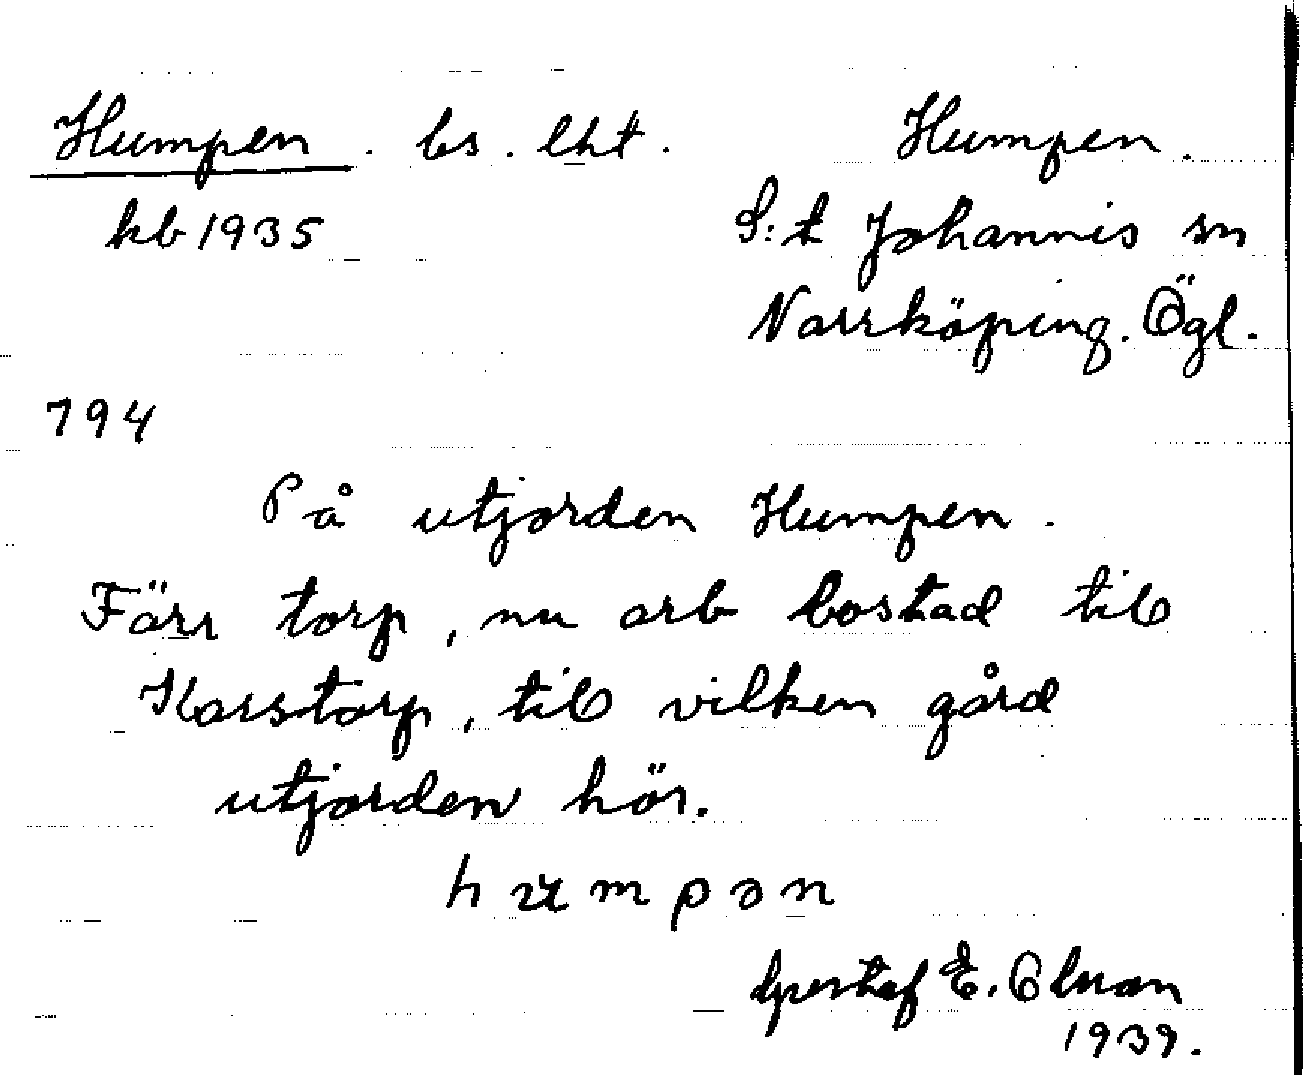 Humpen. bs. lht. Humpen.
kb 1935 S:t Johannis sn
Norrköping. Ögl.
794
På utjorden Humpen.
Förr torp, nu arb bostad till
Korstorp, till vilken gård
utjorden hör.
humpən
Gustaf E.
1939.